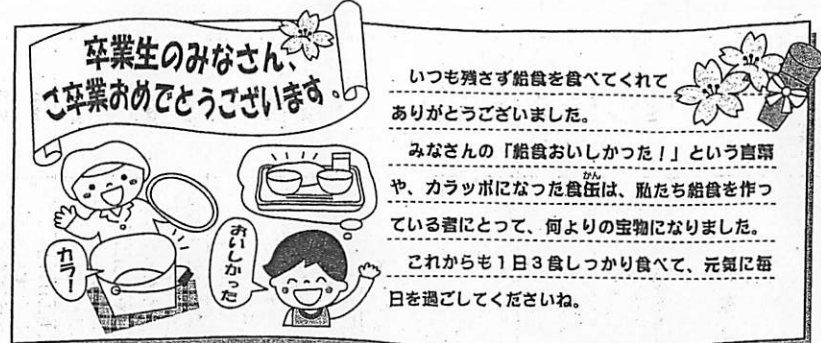 卒業生のみなさん、
ご卒業おめでとうございます。
いつも残さず給食を食べてくれて
ありがとうございました。
みなさんの「給食おいしかった！」という言葉
や、カラッポになった食缶は、私たち給食を作っ
かん
ている者にとって、何よりの宝物になりました。
これからも1日3食しっかり食べて、元気に毎
日を過ごしてくださいね。
カラ！
おいしかった